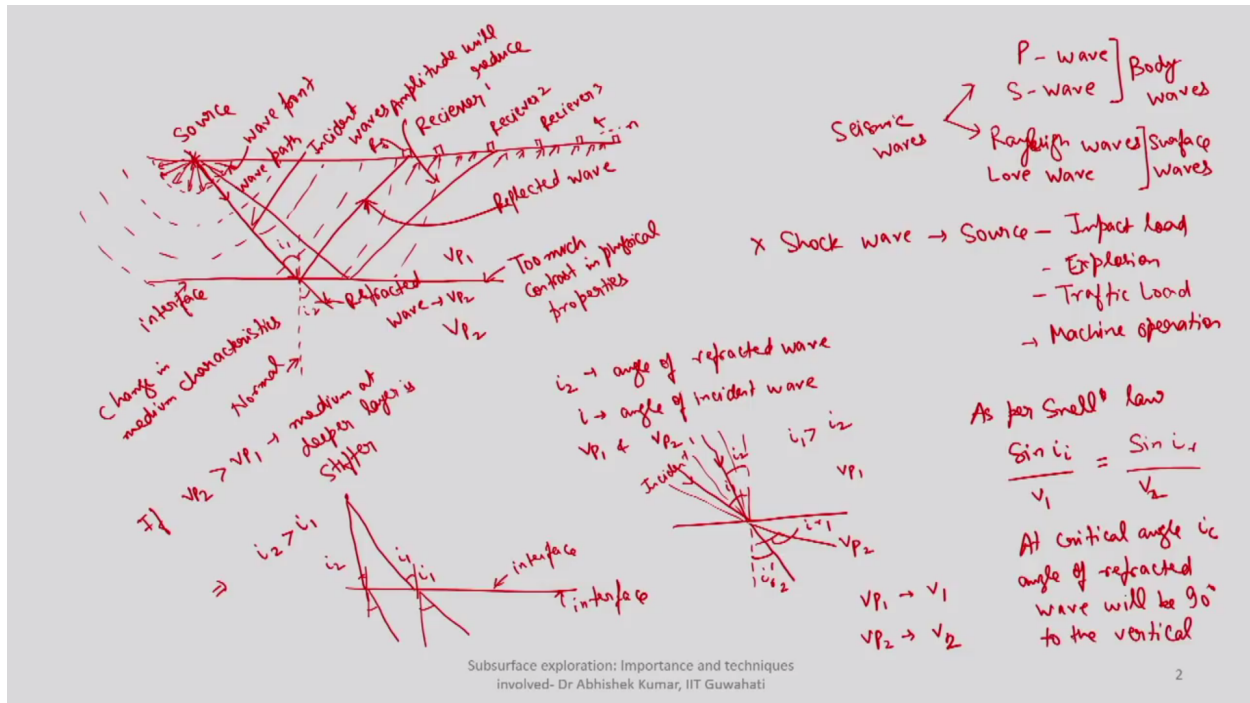 Source
wave front
wave path
Incident
waves
Amplitude will
reduce
Reciever 1
Reciever 2
Reciever 3
n
Reflected wave
VP1
Too much
contrast in physical
properties
interface
i1
i2
Refracted
wave → VP2
VP2
Change in
medium characteristics
Normal
If VP2 > VP1 → medium at
deeper layer is
stiffer
⇒ i2 > i1
i2
i1
i1
interface
interface
i2 → angle of refracted wave
i → angle of incident wave
VP1 & VP2
i1 > i2
Incident
VP1
VP2
VP1 → V1
VP2 → V2
Seismic
waves
P - wave
S - wave
Body
waves
Rayleigh waves
Love wave
Surface
waves
x Shock wave → Source - Impact load
- Explosion
- Traffic Load
→ Machine operation
As per Snell' law
Sin ii / V1 = Sin ir / V2
At critical angle ic
angle of refracted
wave will be 90°
to the vertical
Subsurface exploration: Importance and techniques
involved- Dr Abhishek Kumar, IIT Guwahati
2